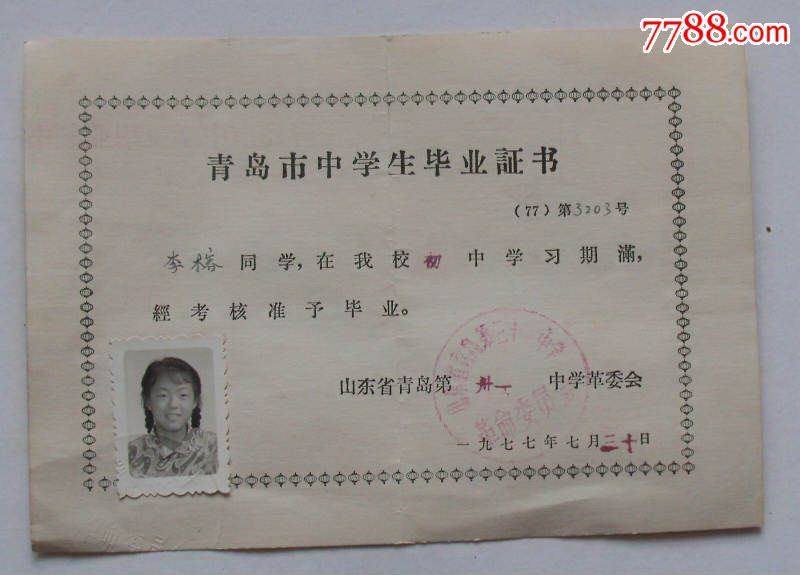 7788.com
青岛市中学生毕业証书
（77）第3203号
李榕同学，在我校初中学习期滿，
經考核准予毕业。
山东省青岛第卅一中学革委会
一九七七年七月三十日